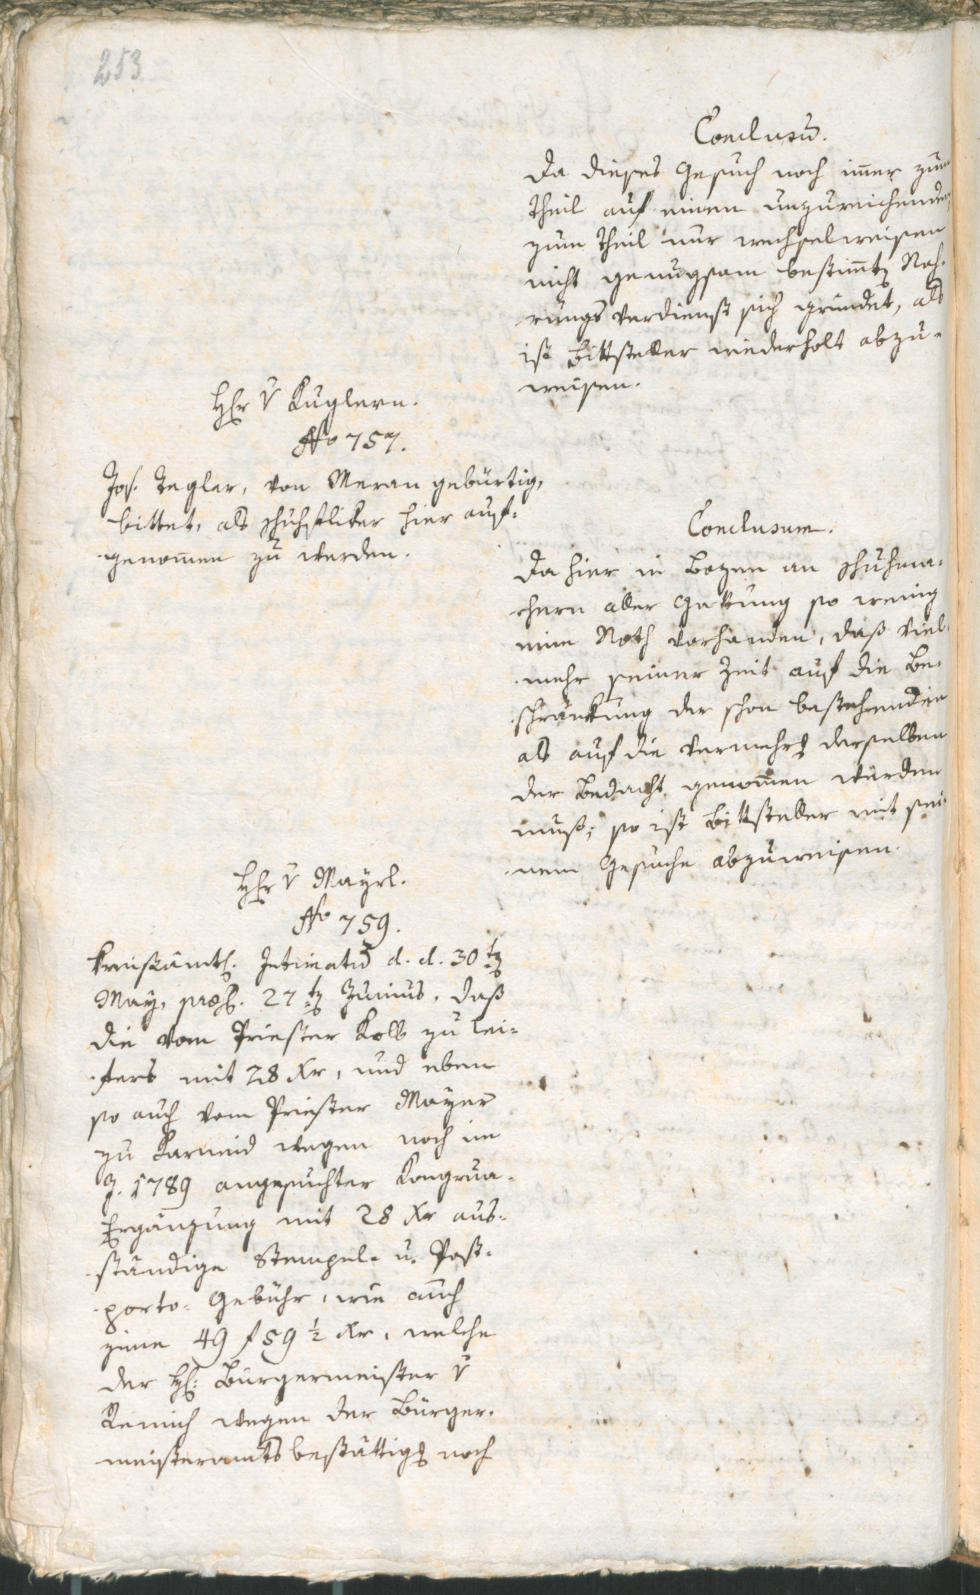 253
Conclusum̅.
Da dieses Gesuch noch im̅er zum
Theil auf einem unzureichenden,
zum Theil nur wechselweisen
nicht genugsam bestim̅ten Nah-
rungsverdienst sich gründet, als
ist Bittsteller wiederholt abzu-
weisen.
Hr v Kuglern.
No 757.
Jos. Tegler, von Meran gebürtig,
bittet, als Schuhflicker hier auf-
genom̅en zu werden.
Conclusum.
Da hier in Bozen an Schuhma-
chern aller Gattung so wenig
eine Noth vorhanden, daß viel
mehr seiner Zeit auf die Be-
schränkung der schon bestehenden
als auf die Vermehrg derselben
der Bedacht genom̅en werden
muß; so ist Bittsteller mit sei-
nem Gesuche abzuweisen.
Hr v Mayrl.
No 759.
Kreisämtl. Intimatum̅ d. d. 30ten
May, præs. 27ten Junius, daß
die vom Priester Kolb zu Lei-
fers mit 28 Xr, und eben
so auch vom Priester Mayer
zu Karneid wegen noch im
J. 1789 angesuchter Kongrua-
Ergänzung mit 28 Xr aus-
ständige Stempel- u. Post-
porto-Gebühr, wie auch
jene 49 f 59 ½ Xr, welche
der H: Bürgermeister v
Remich wegen der Bürger-
meisteramtsbestättigg noch